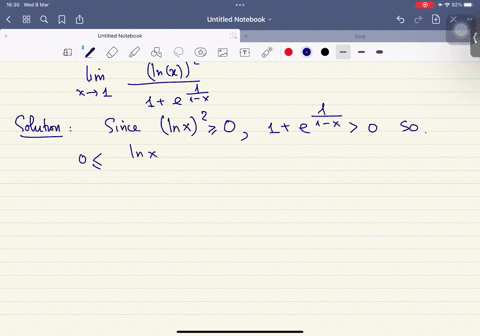 16:30 Wed 8 Mar
92%
Untitled Notebook
Untitled Notebook
lim x→1 (ln(x))² / (1 + e^(1/(1-x)))
Solution : Since (ln x)² ≥ 0, 1 + e^(1/(1-x)) > 0 so.
0 ≤ ln x